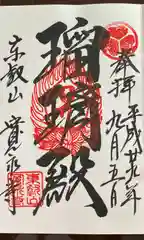 奉拝
平成廿九年
九月五日
瑠璃殿
東叡山
寛永寺